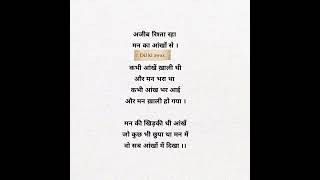 अजीब रिश्ता रहा
मन का आंखों से ।
Dil ki awaz
कभी आंखें ख़ाली थी
और मन भरा था
कभी आंख भर आई
और मन ख़ाली हो गया ।
मन की खिड़की थी आंखें
जो कुछ भी छुपा था मन में
वो सब आंखों में दिखा ।।